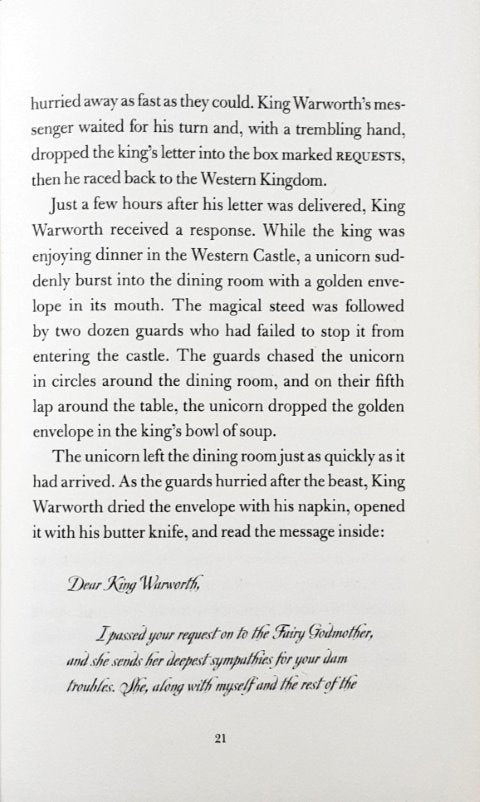 hurried away as fast as they could. King Warworth's mes-
senger waited for his turn and, with a trembling hand,
dropped the king's letter into the box marked REQUESTS,
then he raced back to the Western Kingdom.
Just a few hours after his letter was delivered, King
Warworth received a response. While the king was
enjoying dinner in the Western Castle, a unicorn sud-
denly burst into the dining room with a golden enve-
lope in its mouth. The magical steed was followed
by two dozen guards who had failed to stop it from
entering the castle. The guards chased the unicorn
in circles around the dining room, and on their fifth
lap around the table, the unicorn dropped the golden
envelope in the king's bowl of soup.
The unicorn left the dining room just as quickly as it
had arrived. As the guards hurried after the beast, King
Warworth dried the envelope with his napkin, opened
it with his butter knife, and read the message inside:
Dear King Warworth,
I passed your request on to the Fairy Godmother,
and she sends her deepest sympathies for your dam
troubles. She, along with myself and the rest of the
21